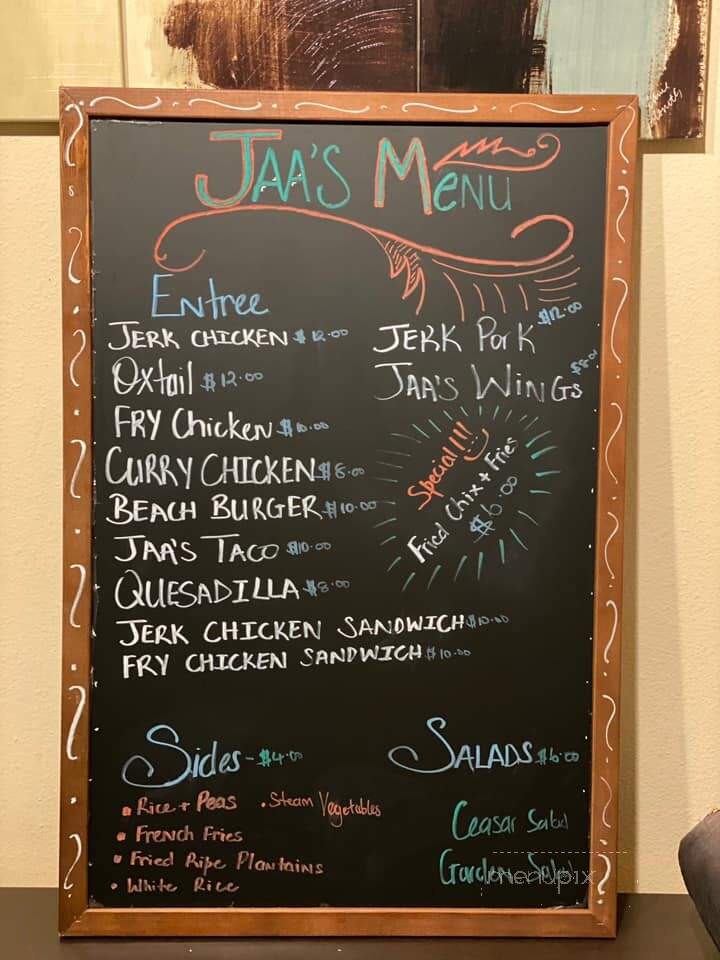 JAA'S MENU
Entree
JERK CHICKEN $12.00
Oxtail $12.00
FRY Chicken $10.00
CURRY CHICKEN $8.00
BEACH BURGER $10.00
JAA'S TACO $10.00
QUESADILLA $8.00
JERK CHICKEN SANDWICH $10.00
FRY CHICKEN SANDWICH $10.00
JERK Pork $12.00
JAA'S WINGS
Special!!!
Fried Chix + Fries
$6.00
Sides - $4.00
Rice + Peas
• Steam Vegetables
• French Fries
• Fried Ripe Plantains
• White Rice
SALADS $6.00
Ceasar Salad
Garden Salad
menupix